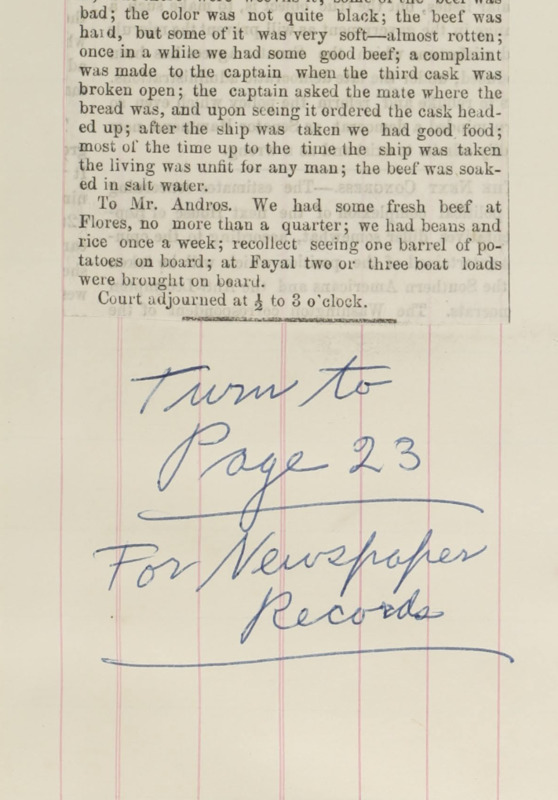 some of the beef was
bad; the color was not quite black; the beef was
hard, but some of it was very soft—almost rotten;
once in a while we had some good beef; a complaint
was made to the captain when the third cask was
broken open; the captain asked the mate where the
bread was, and upon seeing it ordered the cask head-
ed up; after the ship was taken we had good food;
most of the time up to the time the ship was taken
the living was unfit for any man; the beef was soak-
ed in salt water.
To Mr. Andros. We had some fresh beef at
Flores, no more than a quarter; we had beans and
rice once a week; recollect seeing one barrel of po-
tatoes on board; at Fayal two or three boat loads
were brought on board.
Court adjourned at ½ to 3 o'clock.
Turn to
Page 23
For Newspaper
Records